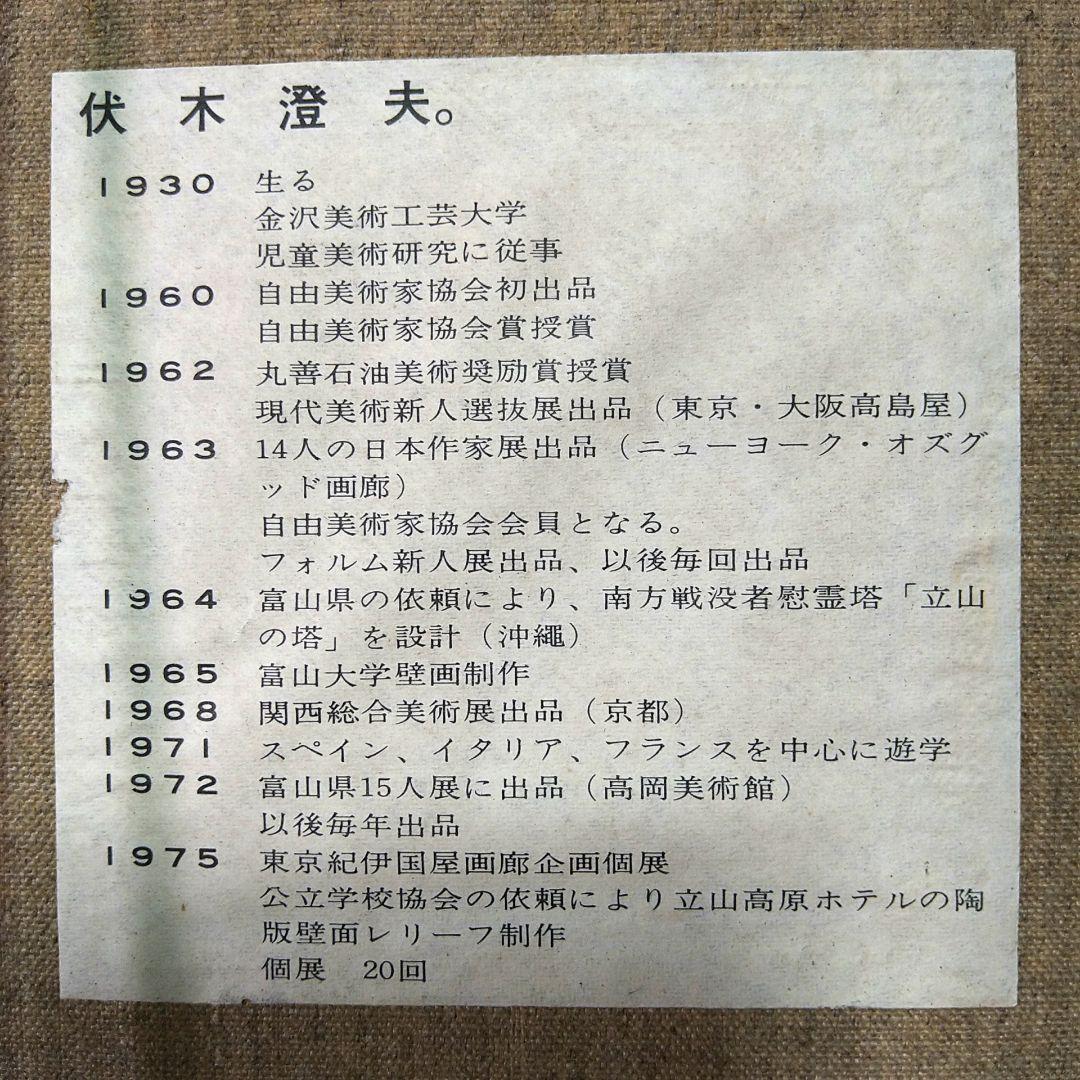 伏木澄夫。
1930 生る
金沢美術工芸大学
児童美術研究に従事
1960 自由美術家協会初出品
自由美術家協会賞授賞
1962 丸善石油美術奨励賞授賞
現代美術新人選抜展出品（東京・大阪高島屋）
1963 14人の日本作家展出品（ニューヨーク・オズグ
ッド画廊）
自由美術家協会会員となる。
フォルム新人展出品、以後毎回出品
1964 富山県の依頼により、南方戦没者慰霊塔「立山
の塔」を設計（沖繩）
1965 富山大学壁画制作
1968 関西総合美術展出品（京都）
1971 スペイン、イタリア、フランスを中心に遊学
1972 富山県15人展に出品（高岡美術館）
以後毎年出品
1975 東京紀伊国屋画廊企画個展
公立学校協会の依頼により立山高原ホテルの陶
版壁面レリーフ制作
個展　20回